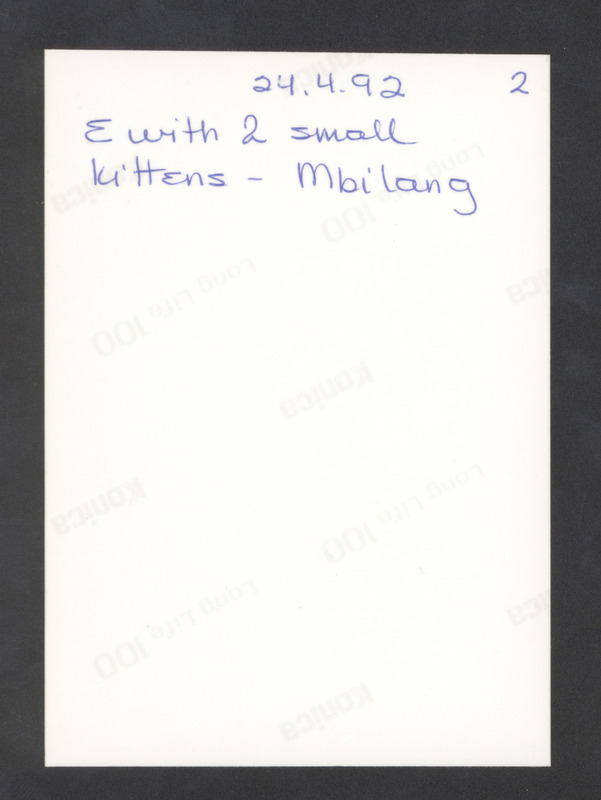 24.4.92 2
E with 2 small
kittens - Mbilang
Konica
Long Life 100
Konica
Long Life 100
Konica
Long Life 100
Konica
Konica
Long Life 100
Konica
Long Life 100
Konica
Konica